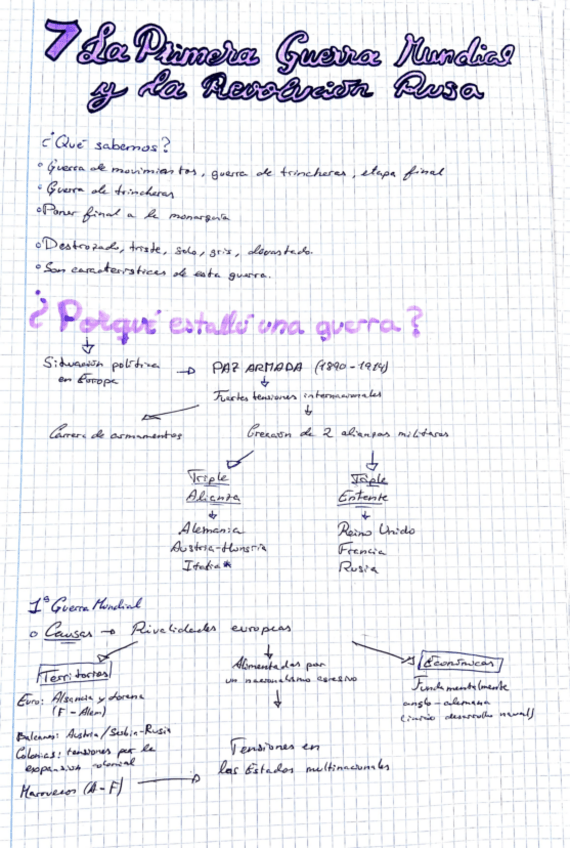 7 La Primera Guerra Mundial
y la Revolución Rusa
¿Qué sabemos?
° Guerra de movimientos, guerra de trincheras, etapa final
° Guerra de trincheras
° Poner final a la monarquía
° Destrozado, triste, solo, gris, devastado.
° Son características de esta guerra.
¿Porqué estalló una guerra?
Situación política → PAZ ARMADA (1890-1914)
en Europa
Fuertes tensiones internacionales
Carrera de armamentos
Creación de 2 alianzas militares
Triple
Alianza
Alemania
Austria-Hungría
Italia*
Triple
Entente
Reino Unido
Francia
Rusia
1ª Guerra Mundial
o Causas → Rivalidades europeas
Territorios
Euro: Alsacia y Lorena
(F-Alem)
Balcanes: Austria/Serbia-Rusia
Colonias: tensiones por la
expansión colonial
Marruecos (A-F) →
Alimentadas por
un nacionalismo excesivo
Tensiones en
los Estados multinacionales
Económicas
Fundamentalmente
anglo-alemana
desarrollo naval)